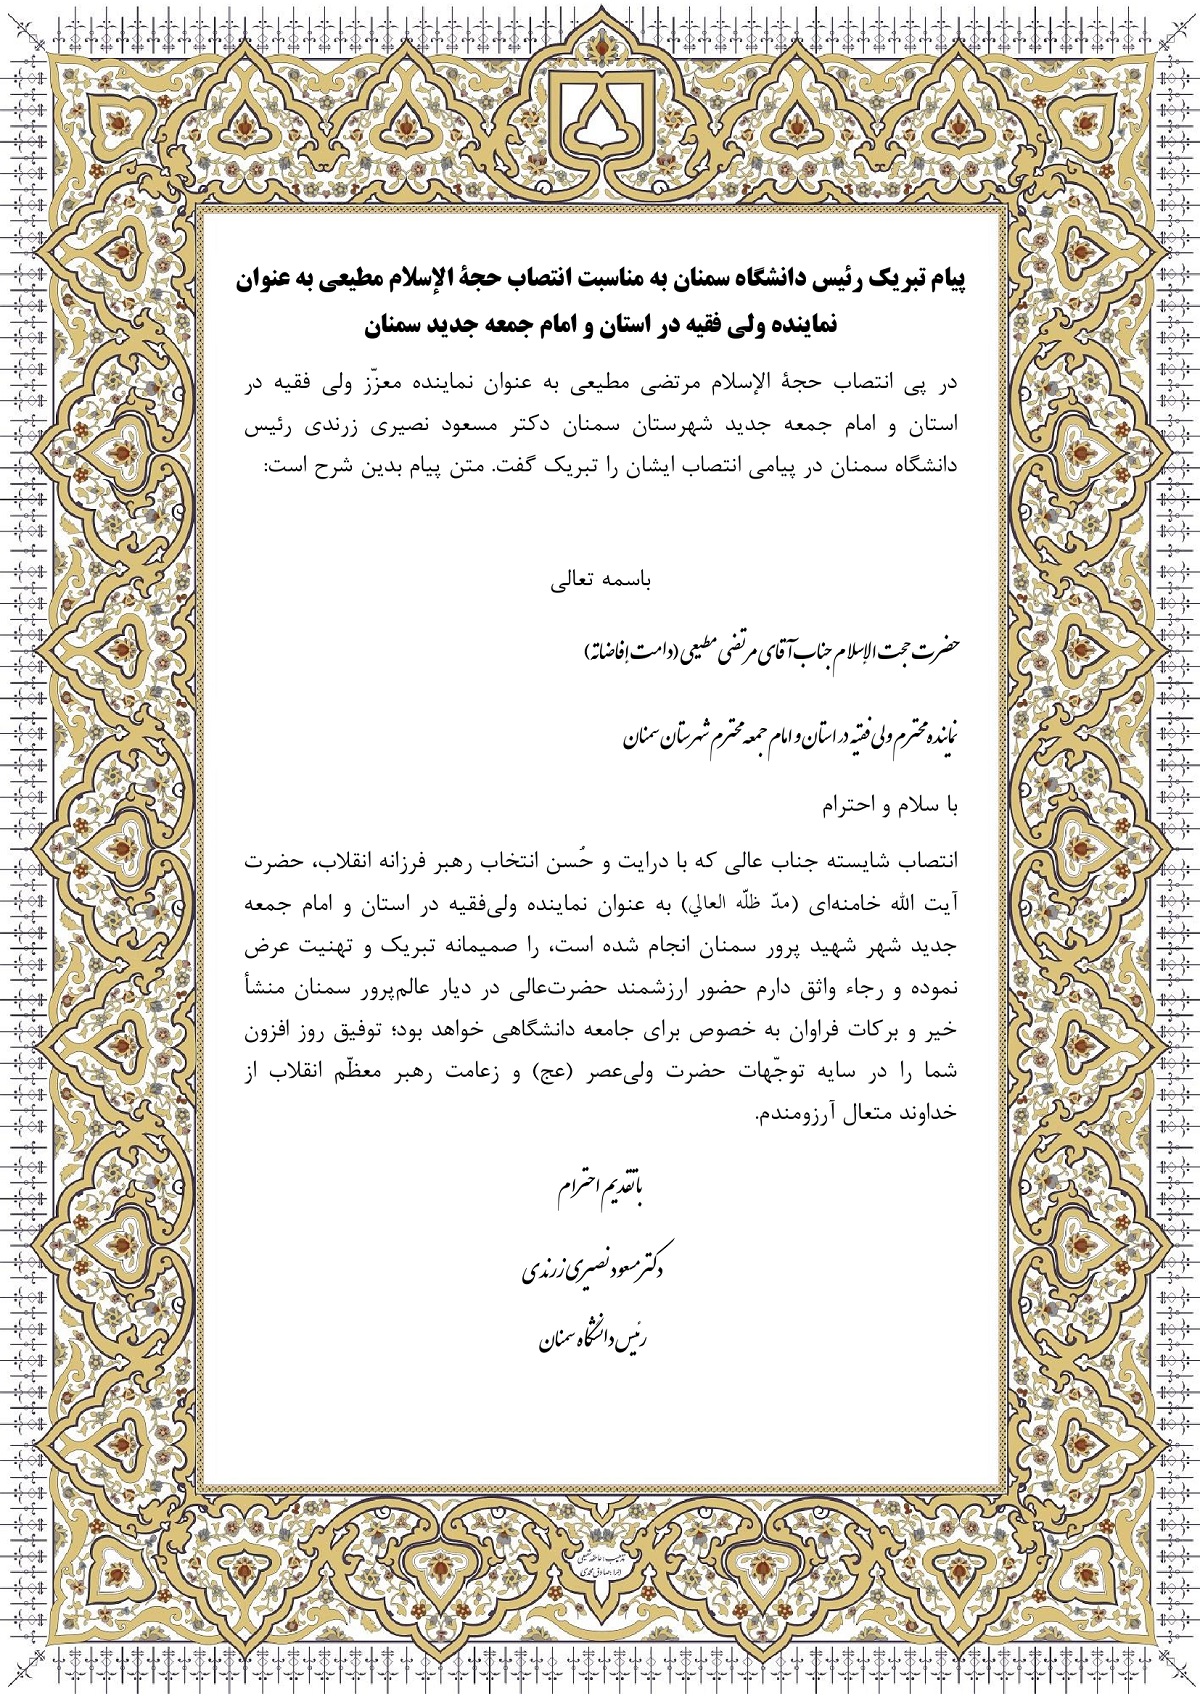 پیام تبریک رئیس دانشگاه سمنان به مناسبت انتصاب حجۀ الإسلام مطیعی به عنوان
نماینده ولی فقیه در استان و امام جمعه جدید سمنان
در پی انتصاب حجۀ الإسلام مرتضی مطیعی به عنوان نماینده معزّز ولی فقیه در
استان و امام جمعه جدید شهرستان سمنان دکتر مسعود نصیری زرندی رئیس
دانشگاه سمنان در پیامی انتصاب ایشان را تبریک گفت. متن پیام بدین شرح است:
باسمه تعالی
حضرت حجت الإسلام جناب آقای مرتضی مطیعی (دامت إفاضاته)
نماینده محترم ولی فقیه در استان و امام جمعه محترم شهرستان سمنان
با سلام و احترام
انتصاب شایسته جناب عالی که با درایت و حُسن انتخاب رهبر فرزانه انقلاب، حضرت
آیت الله خامنه‌ای (مدّ ظلّه العالي) به عنوان نماینده ولی‌فقیه در استان و امام جمعه
جدید شهر شهید پرور سمنان انجام شده است، را صمیمانه تبریک و تهنیت عرض
نموده و رجاء واثق دارم حضور ارزشمند حضرت‌عالی در دیار عالم‌پرور سمنان منشأ
خیر و برکات فراوان به خصوص برای جامعه دانشگاهی خواهد بود؛ توفیق روز افزون
شما را در سایه توجّهات حضرت ولی‌عصر (عج) و زعامت رهبر معظّم انقلاب از
خداوند متعال آرزومندم.
با تقدیم احترام
دکتر مسعود نصیری زرندی
رئیس دانشگاه سمنان